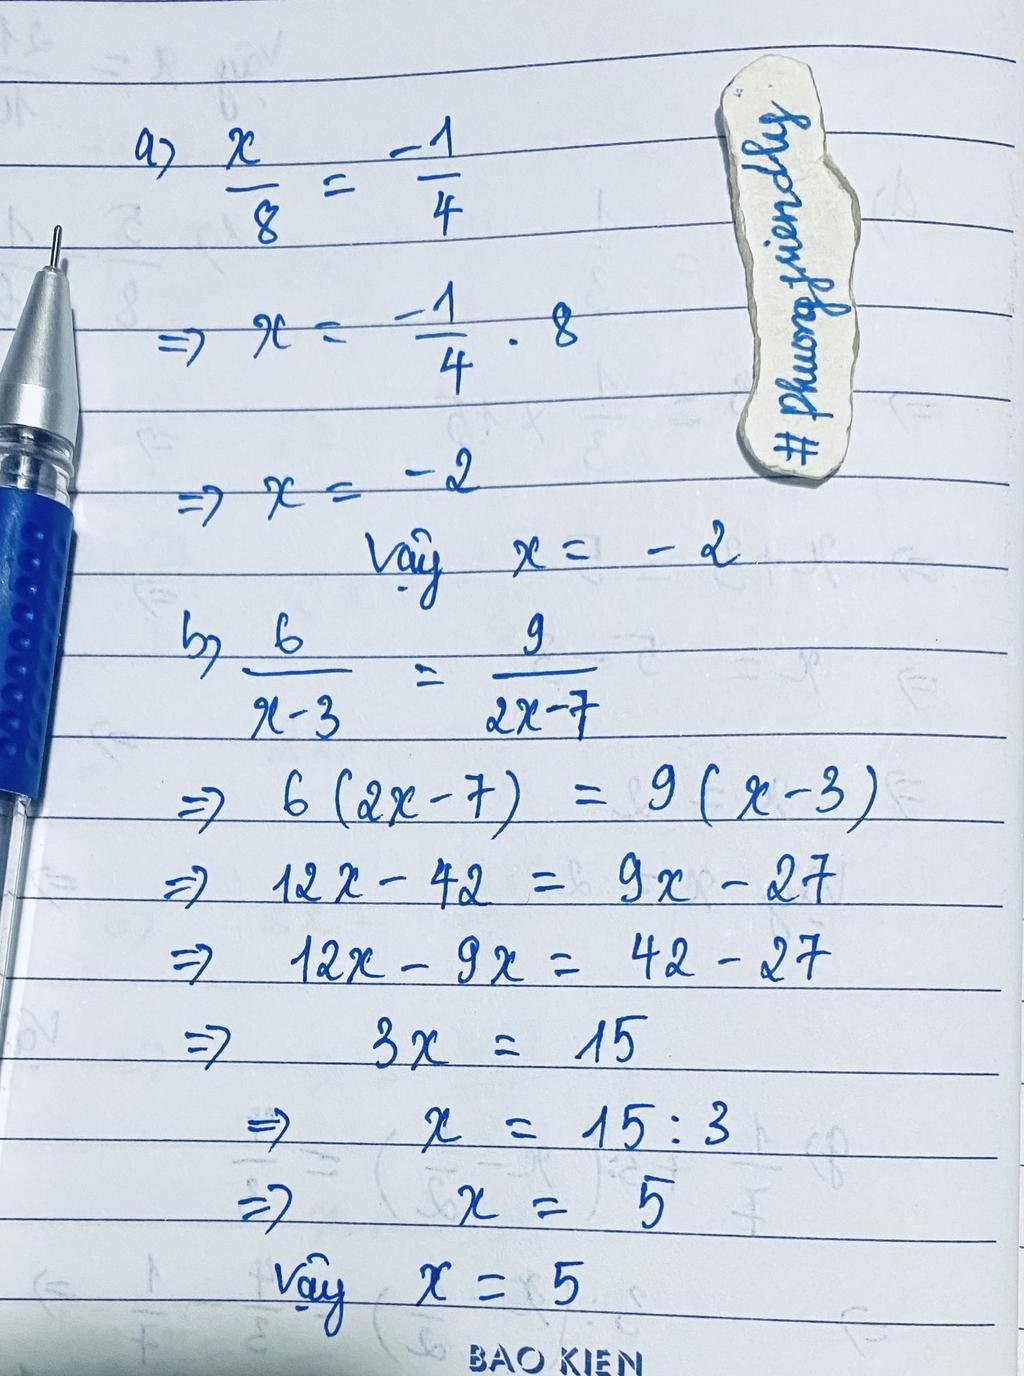 a) x/8 = -1/4
=> x = -1/4 . 8
=> x = -2
Vậy x = -2
b) 6/(x-3) = 9/(2x-7)
=> 6(2x-7) = 9(x-3)
=> 12x - 42 = 9x - 27
=> 12x - 9x = 42 - 27
=> 3x = 15
=> x = 15 : 3
=> x = 5
Vậy x = 5
BAO KIEN
# phuongfriendly